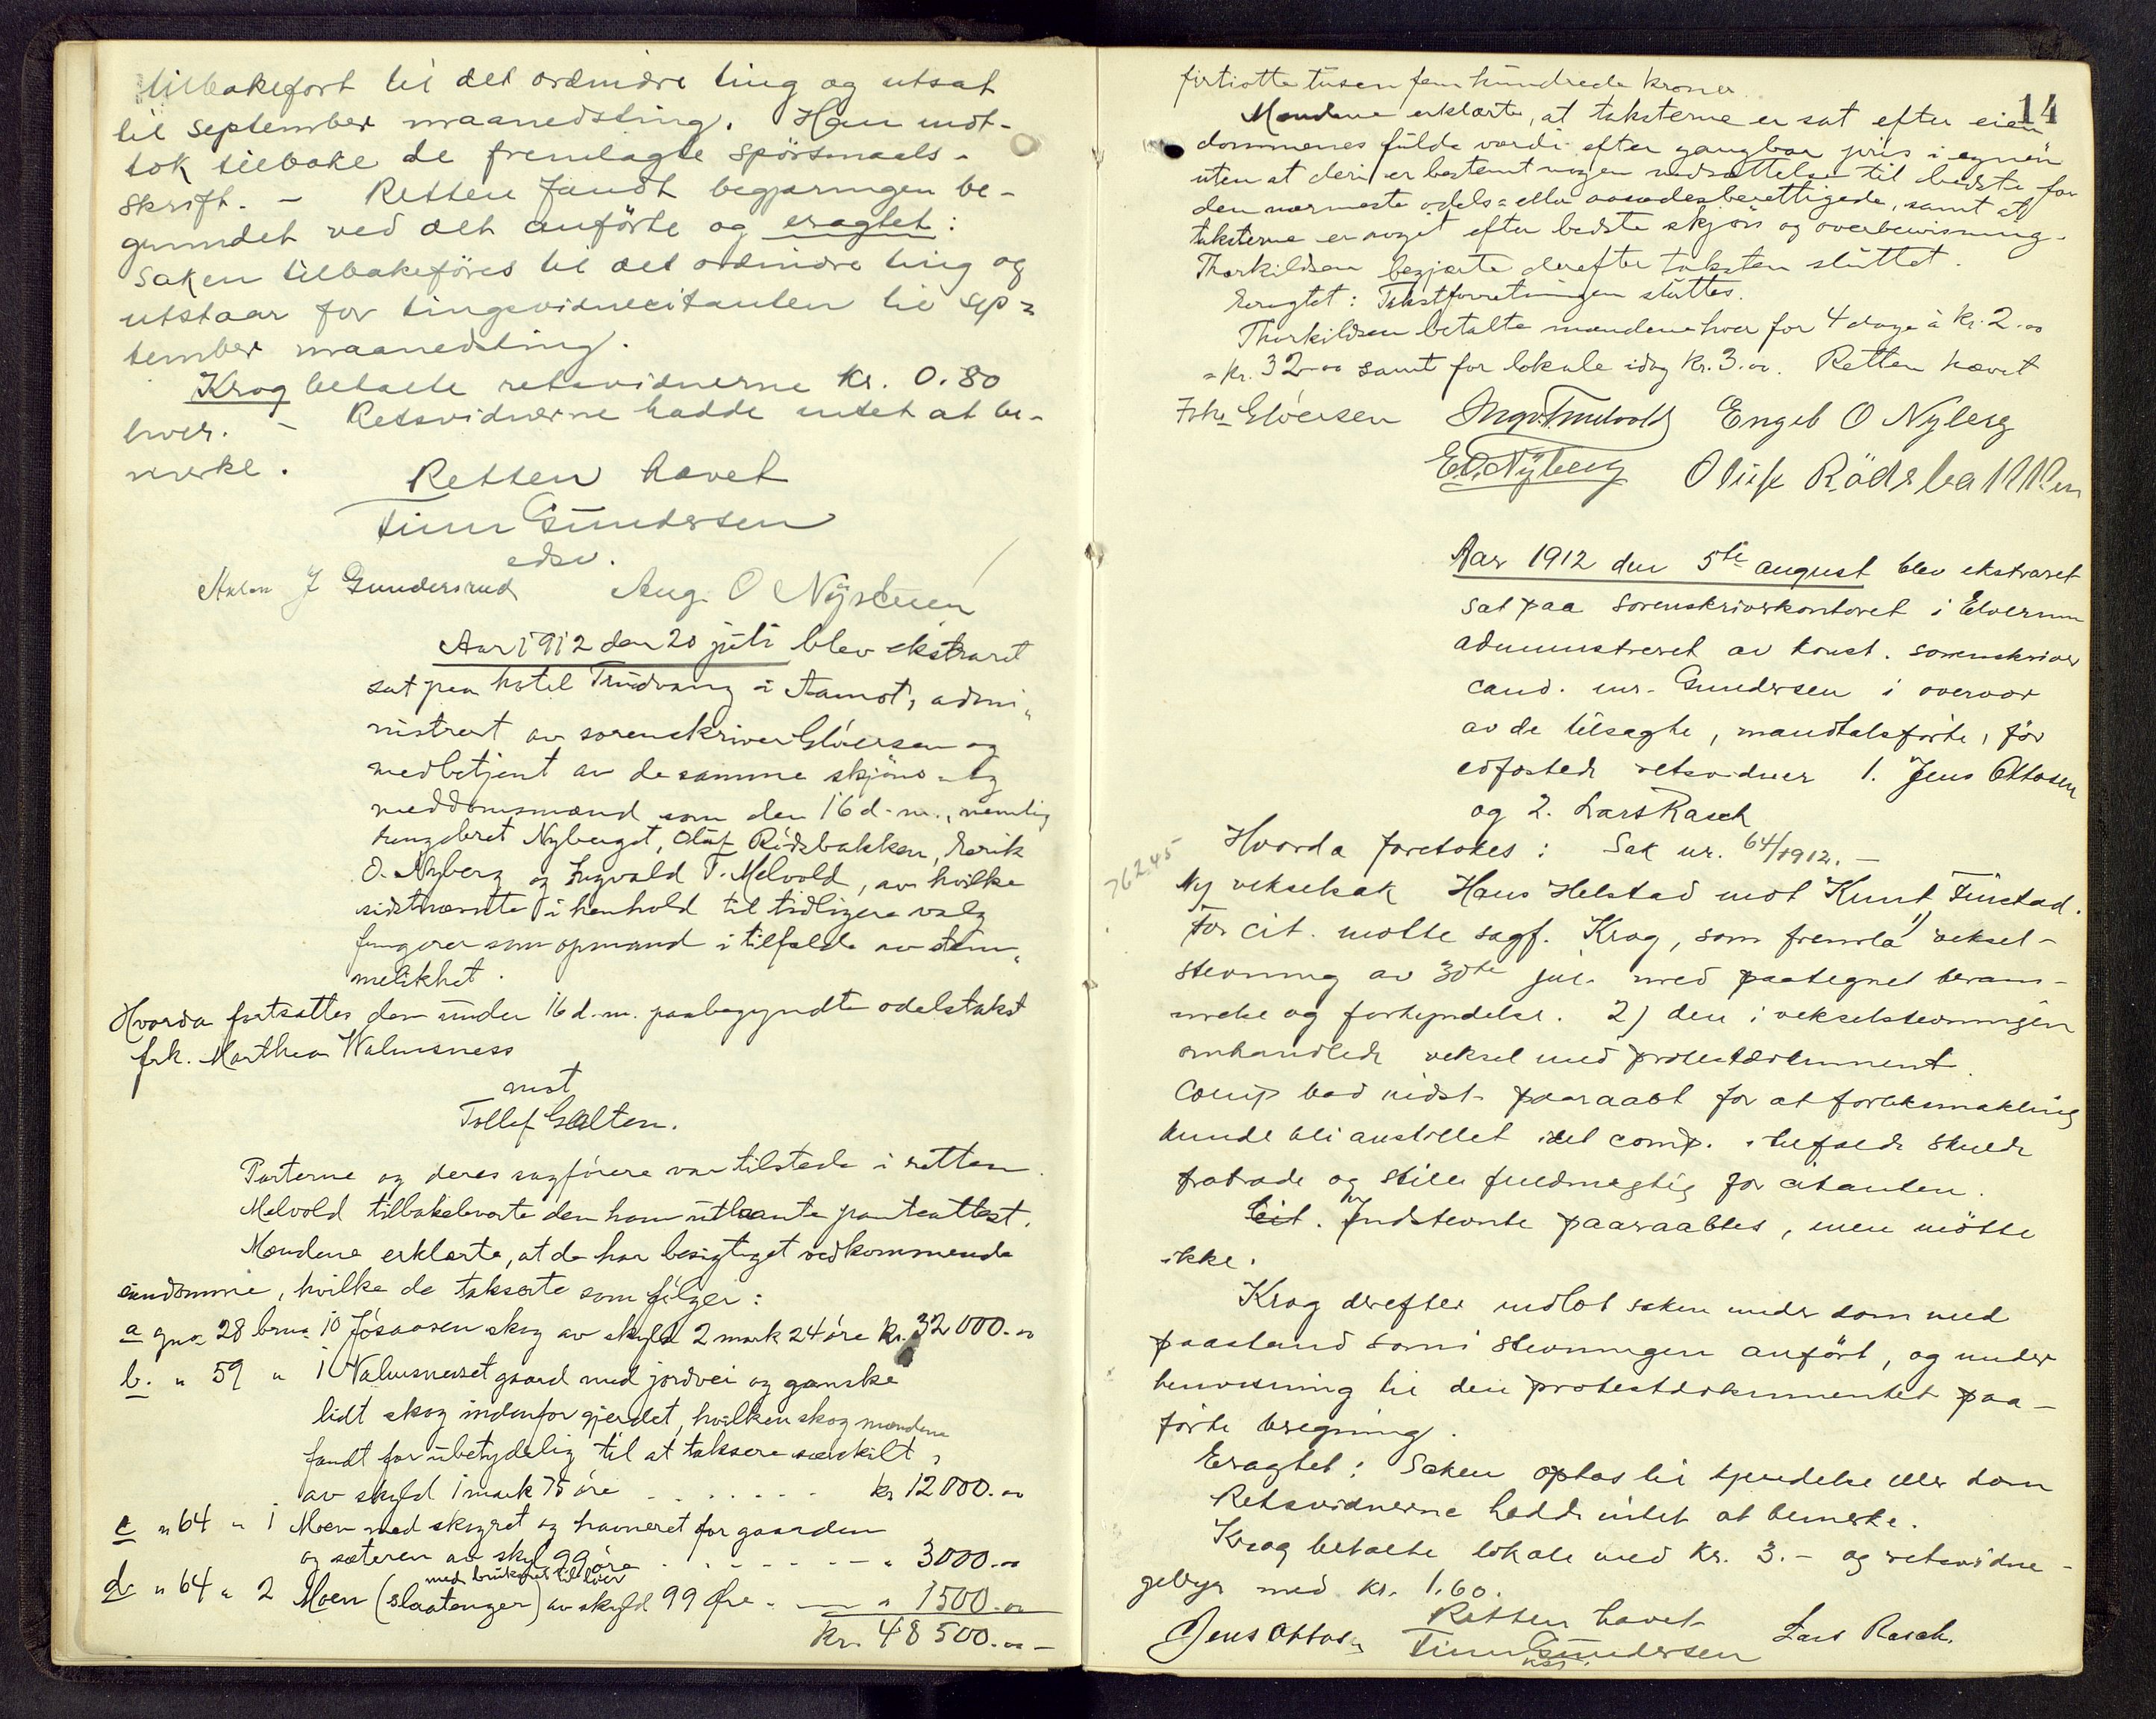 tilbakeført til det ordinære ting og utsat
til september maanedsting. Han mot-
tok tilbake de fremlagte spørsmaals-
skrift. - Retten fandt begjæringen be-
grundet ved det anførte og eragtet:
Saken tilbakeføres til det ordinære ting og
utstaar for tingsvidnecitanten til sep=
tember maanedsting.
Krog betalte retsvidnerne kr. 0.80
hver. - Retsvidnerne hadde intet at be-
merke.
Retten hævet
Finn Gundersen
edsv.
Anton J Gundersrud Aug. O Nystuen
Aar 1912 den 20 juli blev ekstraret
sat paa hotel Trudvang i Aamot, admi-
nistrert av sorenskriver Gløersen og
medbetjent av de samme skjøns- og
meddomsmænd som den 16 d.m., nemlig
Engebret Nyberget, Oluf Rødsbakken, Eerik
O. Nyberg og Ingvald T. Melvold, av hvilke
sidstnævnte i henhold til tidligere valg
fungerer som opmand i tilfælde av stem-
melikhet.
Hvorda fortsattes den under 16 d.m. paabegyndte odelstakst
frk. Marthea Valmsness
mot
Tollef Galten.
Parterne og deres sagførere var tilstede i retten.
Melvold tilbakeleverte den ham utlaante panteattest.
Mændene erklærte, at de har besigtiget vedkommende
eiendomme, hvilke de takserte som følger:
a gno 28 bruno 10 Jøsaasen skog av skyld 2 mark 24 øre kr. 32 000.00
b. " 59 " 1 Valmsnesset gaard med jordvei og ganske
lidt skog indenfor gjerdet, hvilken skog mændene
fandt for ubetydelig til at taksere særskilt,
av skyld 1 mark 75 øre . . . . . . kr 12 000.00
c " 64 " 1 Moen med skogret og havneret for gaarden
og sæteren av skyld 99 øre . . . . . - - " 3000.00
d " 64 " 2 Moen (slaatenger) med bruksret til løer av skyld 99 Øre - — " 1500.00
kr. 48 500.00 -
14
firtiotte tusen fem hundrede kroner.
Mændene erklærte, at taksterne er sat efter eien
dommenes fulde værdi efter gangbar pris i egnen
uten at deri er bestemt nogen nedsættelse til bedste for
den nærmeste odels= eller aasædesberettigede, samt at
taksterne er avgit efter bedste skjøn og overbevisning.
Thorkildsen begjærte derefter taksten sluttet.
Eragtet: Takstforretningen sluttes.
Thorkildsen betalte mændene hver for 4 dage à kr. 2.00
= kr. 32.00 samt for lokale idag kr. 3.00. Retten hævet
Gløersen Ingv. T. Melvold Engeb O Nyberg
E O Nyberg Oluf Rödsbakken
Aar 1912 den 5te august blev ekstraret
sat paa sorenskriverkontoret i Elverum
administreret av konst. sorenskriver
cand. jur. Gundersen i overvær
av de tilsagte, mandtalsførte, før
edfæstede retsvidner 1. Jens Ottosen
og 2. Lars Rasch
Hvorda foretokes: Sak nr. 64/1912. -
762.45
Ny vekselsak Hans Helstad mot Knut Finstad.
For cit. møtte sagf. Krog, som fremla 1) veksel-
stevning av 30te juli med paategnet beram-
melse og forkyndelse. 2) den i vekselstevningen
omhandlede veksel med protestdokument.
Comp bad indst. paaraabt for at forliksmækling
kunde bli anstillet idet comp. i tilfælde skulde
fratræde og stille fuldmægtig for citanten.
Cit. Indstevnte paaraabtes, men møtte
ikke.
Krog derefter indlot saken under dom med
paastand som i stevningen anført, og under
henvisning til den protestdokumentet paa-
førte beregning.
Eragtet: Saken optas til kjendelse eller dom
Retsvidnerne hadde intet at bemerke.
Krog betalte lokale med kr. 3.- og retsvidne-
gebyr med kr. 1.60.
Retten hævet
Jens Ottosen Finn Gundersen Lars Rasch.
kst.